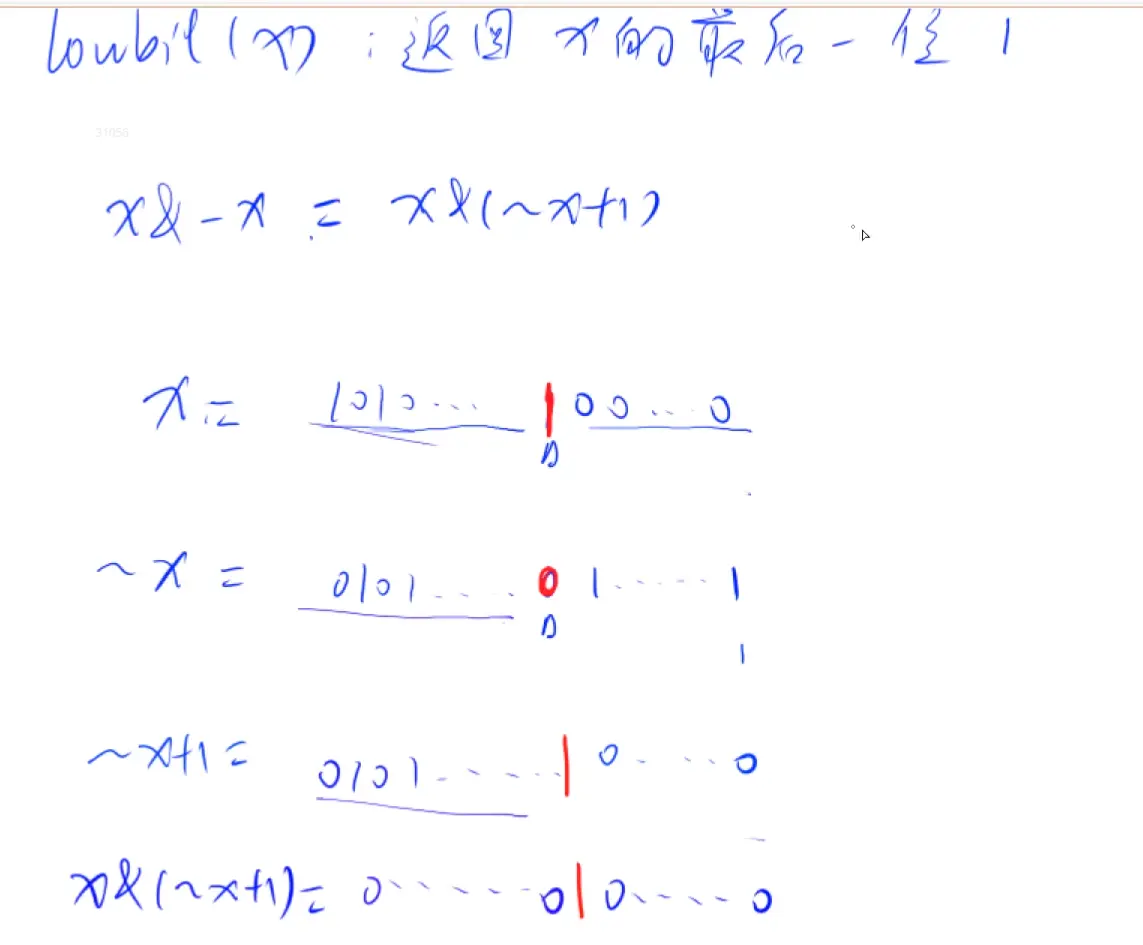 lowbit(x) : 返回 x的最后一位 1
31056
x&-x = x&(~x+1)
x = 1010... 1 00...0
~x = 0101..... 0 1......1
1
~x+1 = 0101...... 1 0.....0
x&(~x+1) = 0......0 1 0.....0